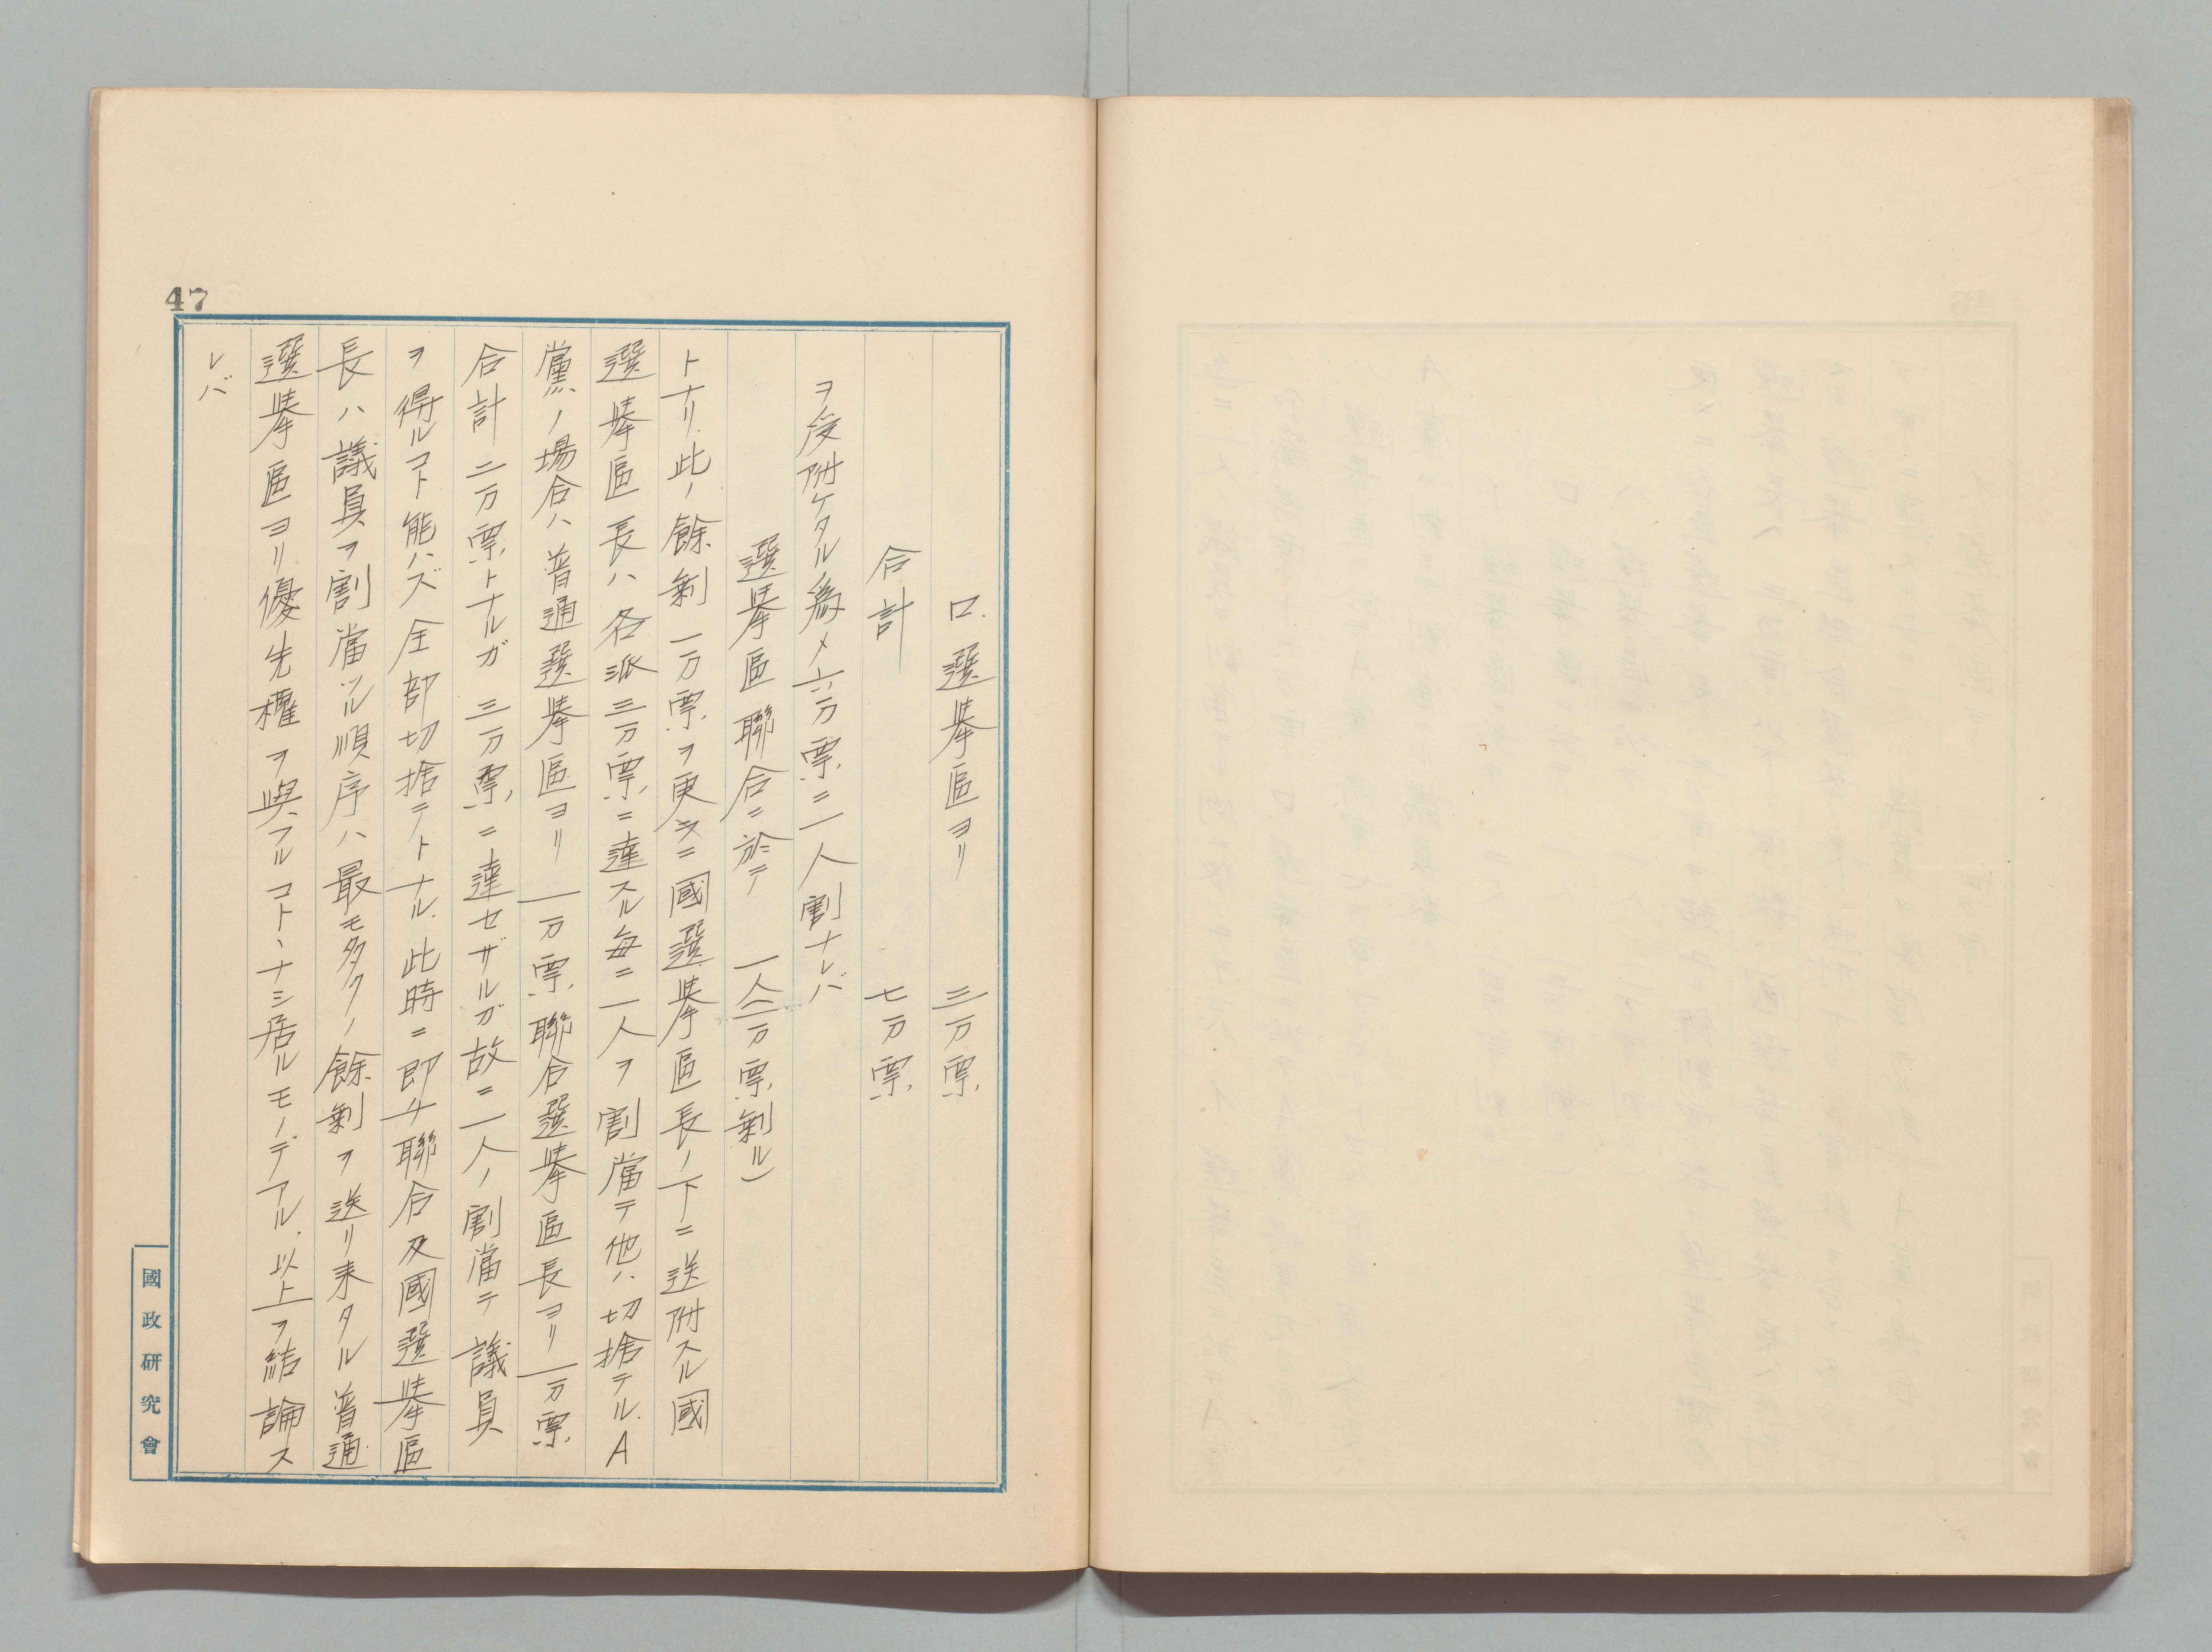 47
ロ.選擧區ヨリ 三万票
合計 七万票
ヲ受附ケタル爲メ六万票ニ二人割ナレバ
選擧區聯合ニ於テ 二人(一万票剩ル)
トナリ此ノ餘剩一万票ヲ更ラニ國選擧區長ノ下ニ送附スル國
選擧區長ハ各派三万票ニ達スル毎ニ一人ヲ割當テ他ハ切捨テル.A
黨ノ場合ハ普通選擧區ヨリ一万票聯合選擧區長ヨリ一万票
合計二万票トナルガ三万票ニ達セザルガ故ニ一人ノ割當テ議員
ヲ得ルコト能ハズ全部切捨テトナル.此時ニ即チ聯合及國選擧區
長ハ議員ヲ割當ツル順序ハ最モ多クノ餘剩ヲ送リ来タル普通
選擧區ヨリ優先權ヲ與フルコトヽナシ居ルモノデアル.以上ヲ結論ス
レバ
國政研究會